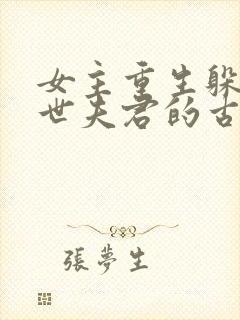 女主重生躲
世夫君的古
張夢生